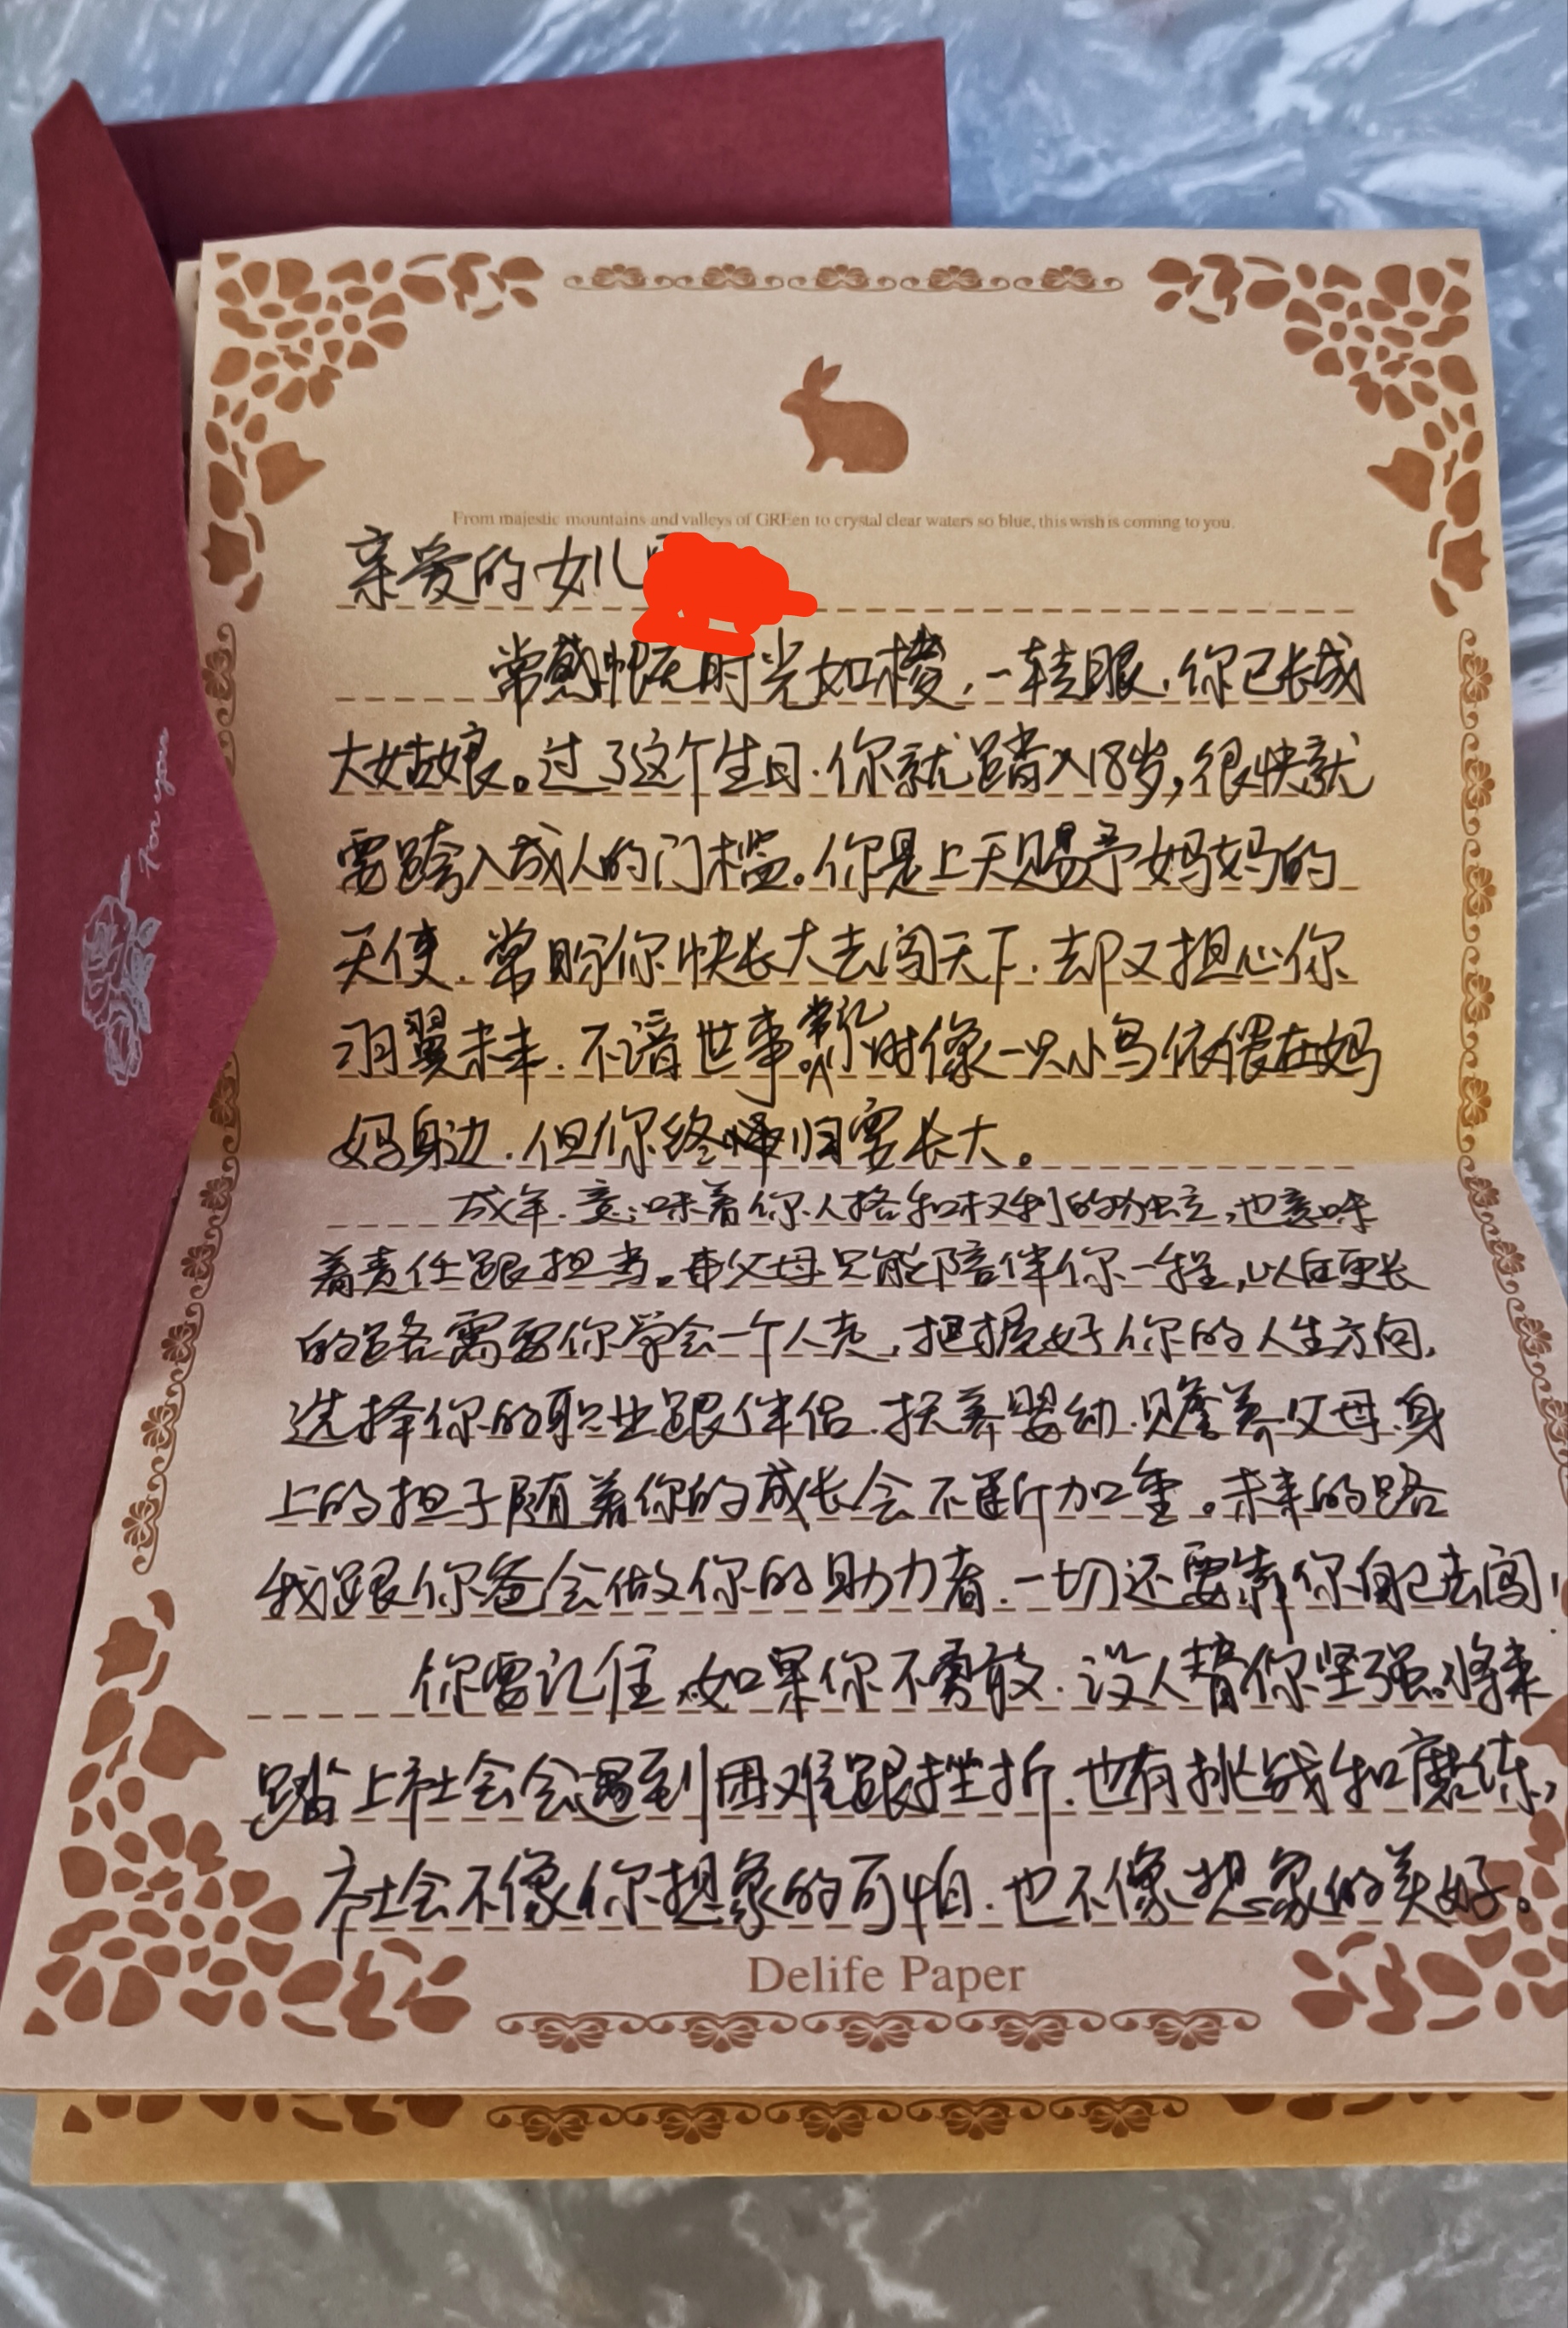 From majestic mountains and valleys of GREen to crystal clear waters so blue, this wish is coming to you.
亲爱的女儿
常感慨时光如梭,一转眼,你已长成
大姑娘。过了这个生日,你就踏入18岁,很快就
要跨入成人的门槛。你是上天赐予妈妈的
天使,常盼你快长大去闯天下,却又担心你
羽翼未丰,不谙世事。常忆你儿时像一只小鸟依偎在妈
妈身边,但你终归要长大。
成年,意味着你人格和权利的独立,也意味
着责任跟担当。父母只能陪伴你一程,以后更长
的路需要你学会一个人走,把握好你的人生方向,
选择你的职业跟伴侣,扶养婴幼,赡养父母,身
上的担子随着你的成长会不断加重。未来的路
我跟你爸会做你的助力者,一切还要靠你自己去闯!
你要记住,如果你不勇敢,没人替你坚强。将来
踏上社会会遇到困难跟挫折,也有挑战和磨练,
社会不像你想象的可怕,也不像想象的美好。
Delife Paper
For you